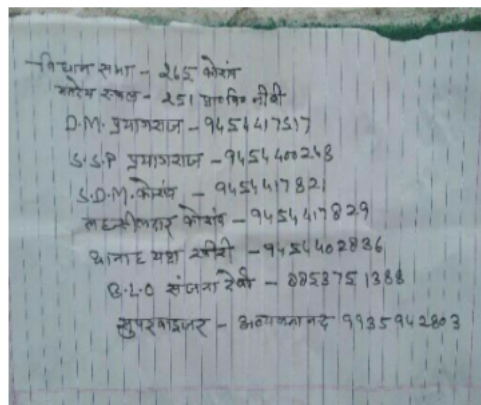 विधान सभा - 265 कोरांव
मतदेय स्थल - 251 प्रा० वि० नीवी
D.M. प्रयागराज - 9454417517
S.S.P प्रयागराज - 9454400248
S.D.M. कोरांव - 9454417821
तहसीलदार कोरांव - 9454417829
थानाध्यक्ष खीरी - 9454402836
B.L.O संजना देवी - 8853751388
सुपरवाइजर - 9935942803